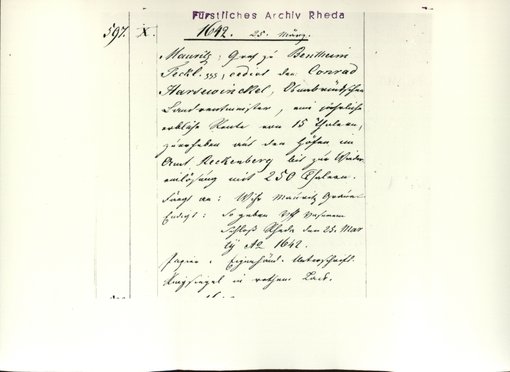 Fürstliches Archiv Rheda
597. X. 1642. 25. März.
Mauritz, Graf zu Bentheim
Teckl. pp, cedirt dem Conrad
Harsewinckel, Osnabrückschen
Landrentmeister, eine jährliche
erbliche Rente von 15 Thalern,
zu erheben aus den Höfen im
Amt Reckenberg bis zur Wieder
einlösung mit 250 Thalern.
Fängt an: Wihr Mauritz Grave
Endigt: So geben Uff Unserem
Schloß Rheda den 25. Mar
tij Ao 1642.
Papier. Eigenhänd. Unterschrift.
Ringsiegel in rothem Lack.